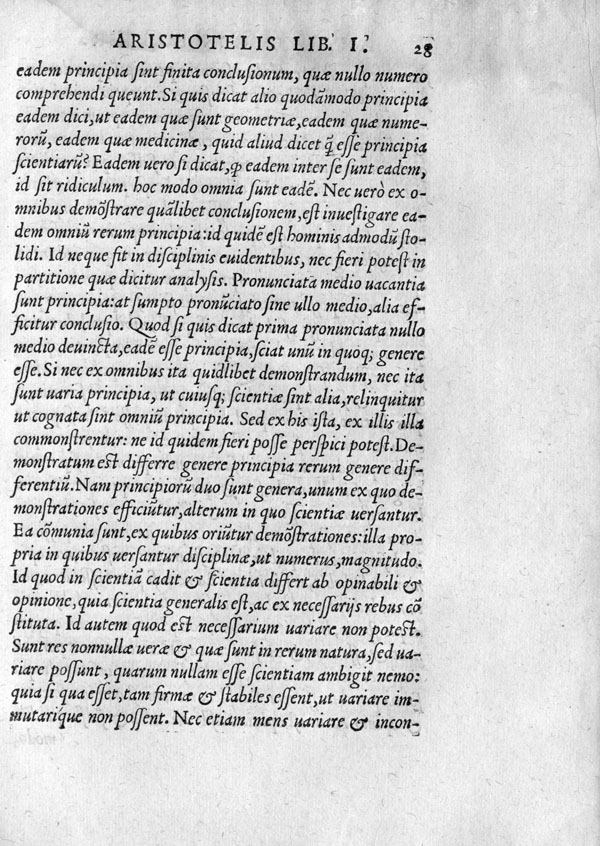 ARISTOTELIS LIB. I. 28
eadem principia sint finita conclusionum, quæ nullo numero
comprehendi queunt. Si quis dicat alio quodãmodo principia
eadem dici, ut eadem quæ sunt geometriæ, eadem quæ nume-
rorũ, eadem quæ medicinæ, quid aliud dicet q̃ esse principia
scientiarũ? Eadem uero si dicat, ꝙ eadem inter se sunt eadem,
id sit ridiculum. hoc modo omnia sunt eadẽ. Nec uerò ex o-
mnibus demõstrare quãlibet conclusionem, est inuestigare ea-
dem omniũ rerum principia: id quidẽ est hominis admodũ sto-
lidi. Id neque fit in disciplinis euidentibus, nec fieri potest in
partitione quæ dicitur analysis. Pronunciata medio uacantia
sunt principia: at sumpto pronũciato sine ullo medio, alia ef-
ficitur conclusio. Quod si quis dicat prima pronunciata nullo
medio deuincta, eadẽ esse principia, sciat unũ in quoq; genere
esse. Si nec ex omnibus ita quidlibet demonstrandum, nec ita
sunt uaria principia, ut cuiusq; scientiæ sint alia, relinquitur
ut cognata sint omniũ principia. Sed ex his ista, ex illis illa
commonstrentur: ne id quidem fieri posse perspici potest. De-
monstratum est differre genere principia rerum genere dif-
ferentiũ. Nam principiorũ duo sunt genera, unum ex quo de-
monstrationes efficiũtur, alterum in quo scientiæ uersantur.
Ea cõmunia sunt, ex quibus oriũtur demõstrationes: illa pro-
pria in quibus uersantur disciplinæ, ut numerus, magnitudo.
Id quod in scientiã cadit & scientia differt ab opinabili &
opinione, quia scientia generalis est, ac ex necessarijs rebus cõ
stituta. Id autem quod est necessarium uariare non potest.
Sunt res nonnullæ ueræ & quæ sunt in rerum natura, sed ua-
riare possunt, quarum nullam esse scientiam ambigit nemo:
quia si qua esset, tam firmæ & stabiles essent, ut uariare im-
mutarique non possent. Nec etiam mens uariare & incon-